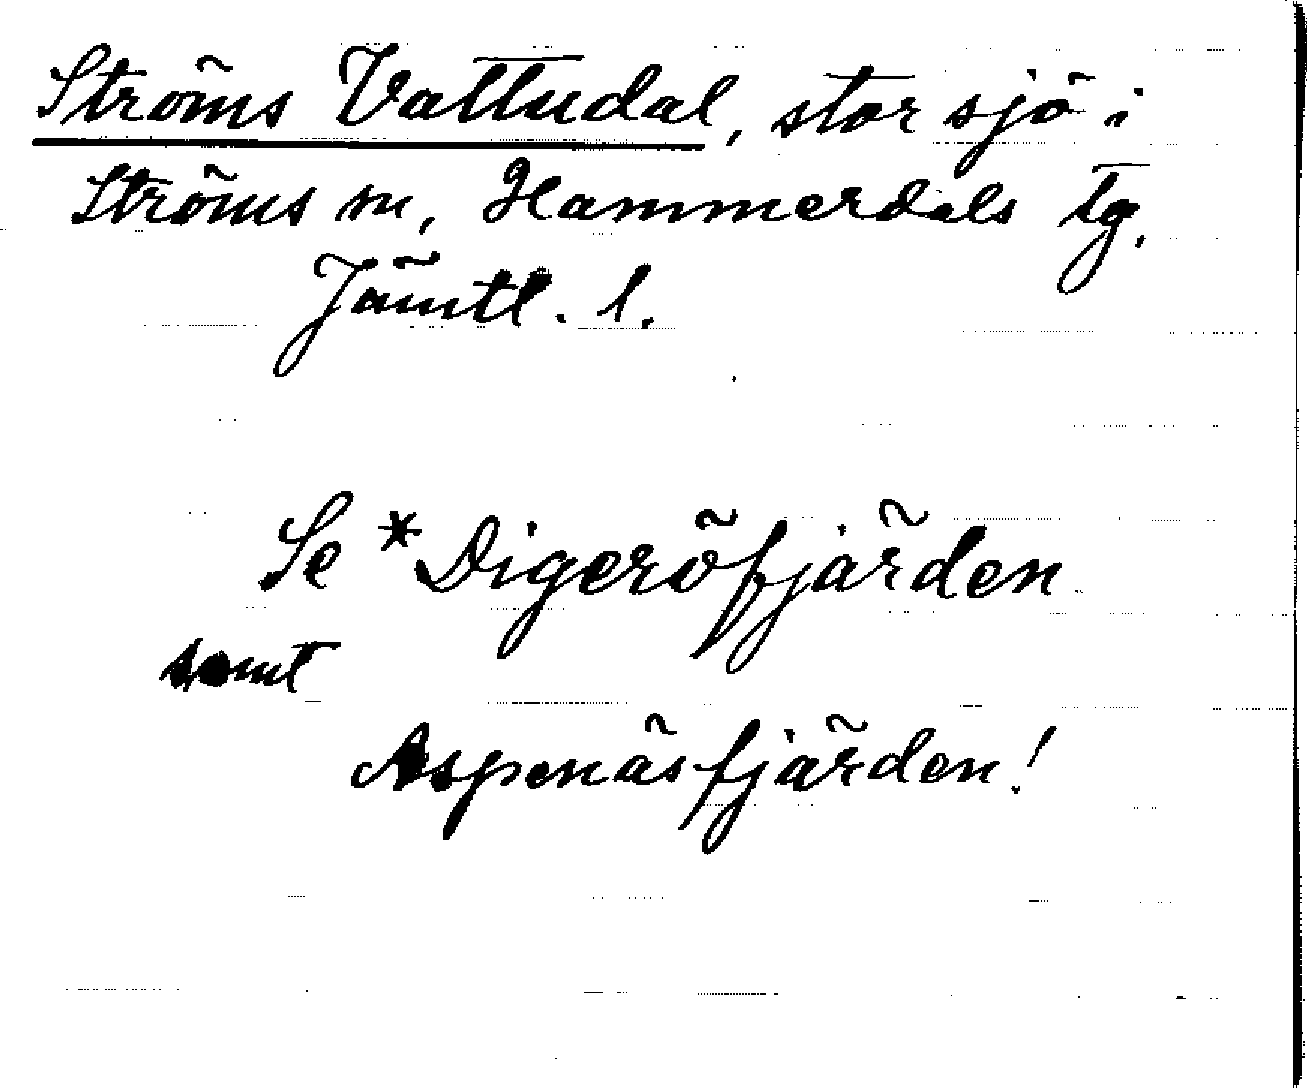 Ströms Vattudal, stor sjö i
Ströms sn, Hammerdals tg.
Jämtl. l.
Se *Digeröfjärden
samt
Aspenäsfjärden!